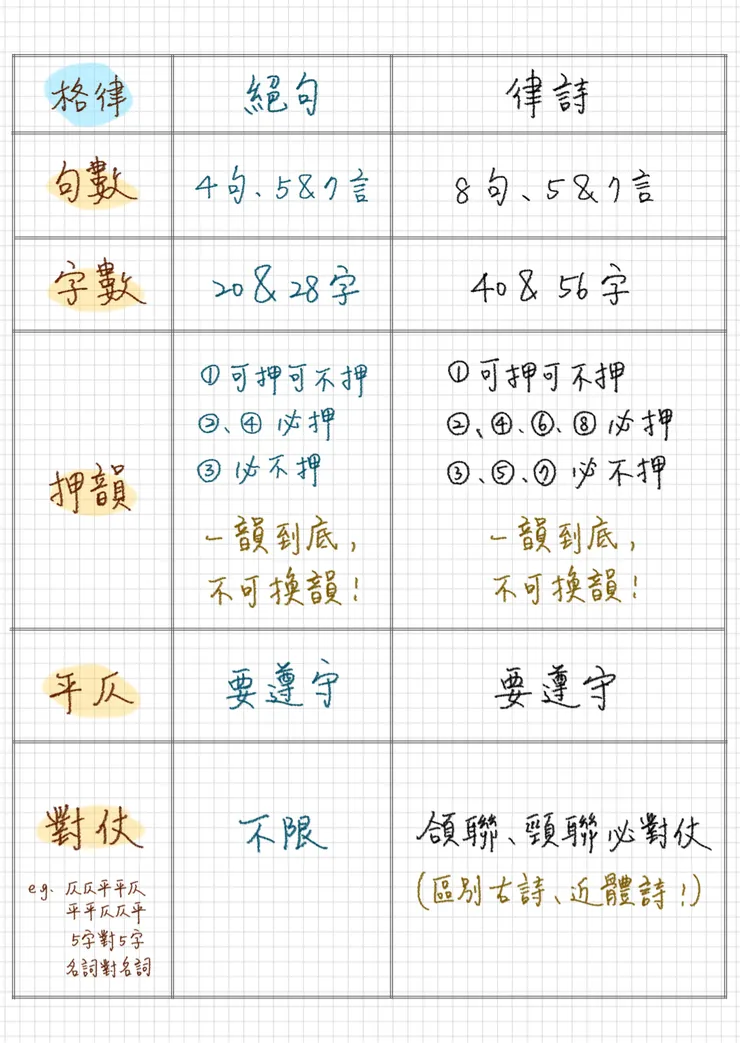 格律 絕句 律詩
句數 4句、5&7言 8句、5&7言
字數 20&28字 40&56字
押韻
①可押可不押
②、④必押
③必不押
一韻到底，
不可換韻！
①可押可不押
②、④、⑥、⑧必押
③、⑤、⑦必不押
一韻到底，
不可換韻！
平仄 要遵守 要遵守
對仗
eg. 仄仄平平仄
平平仄仄平
5字對5字
名詞對名詞
不限
頷聯、頸聯必對仗
(區別古詩、近體詩！)